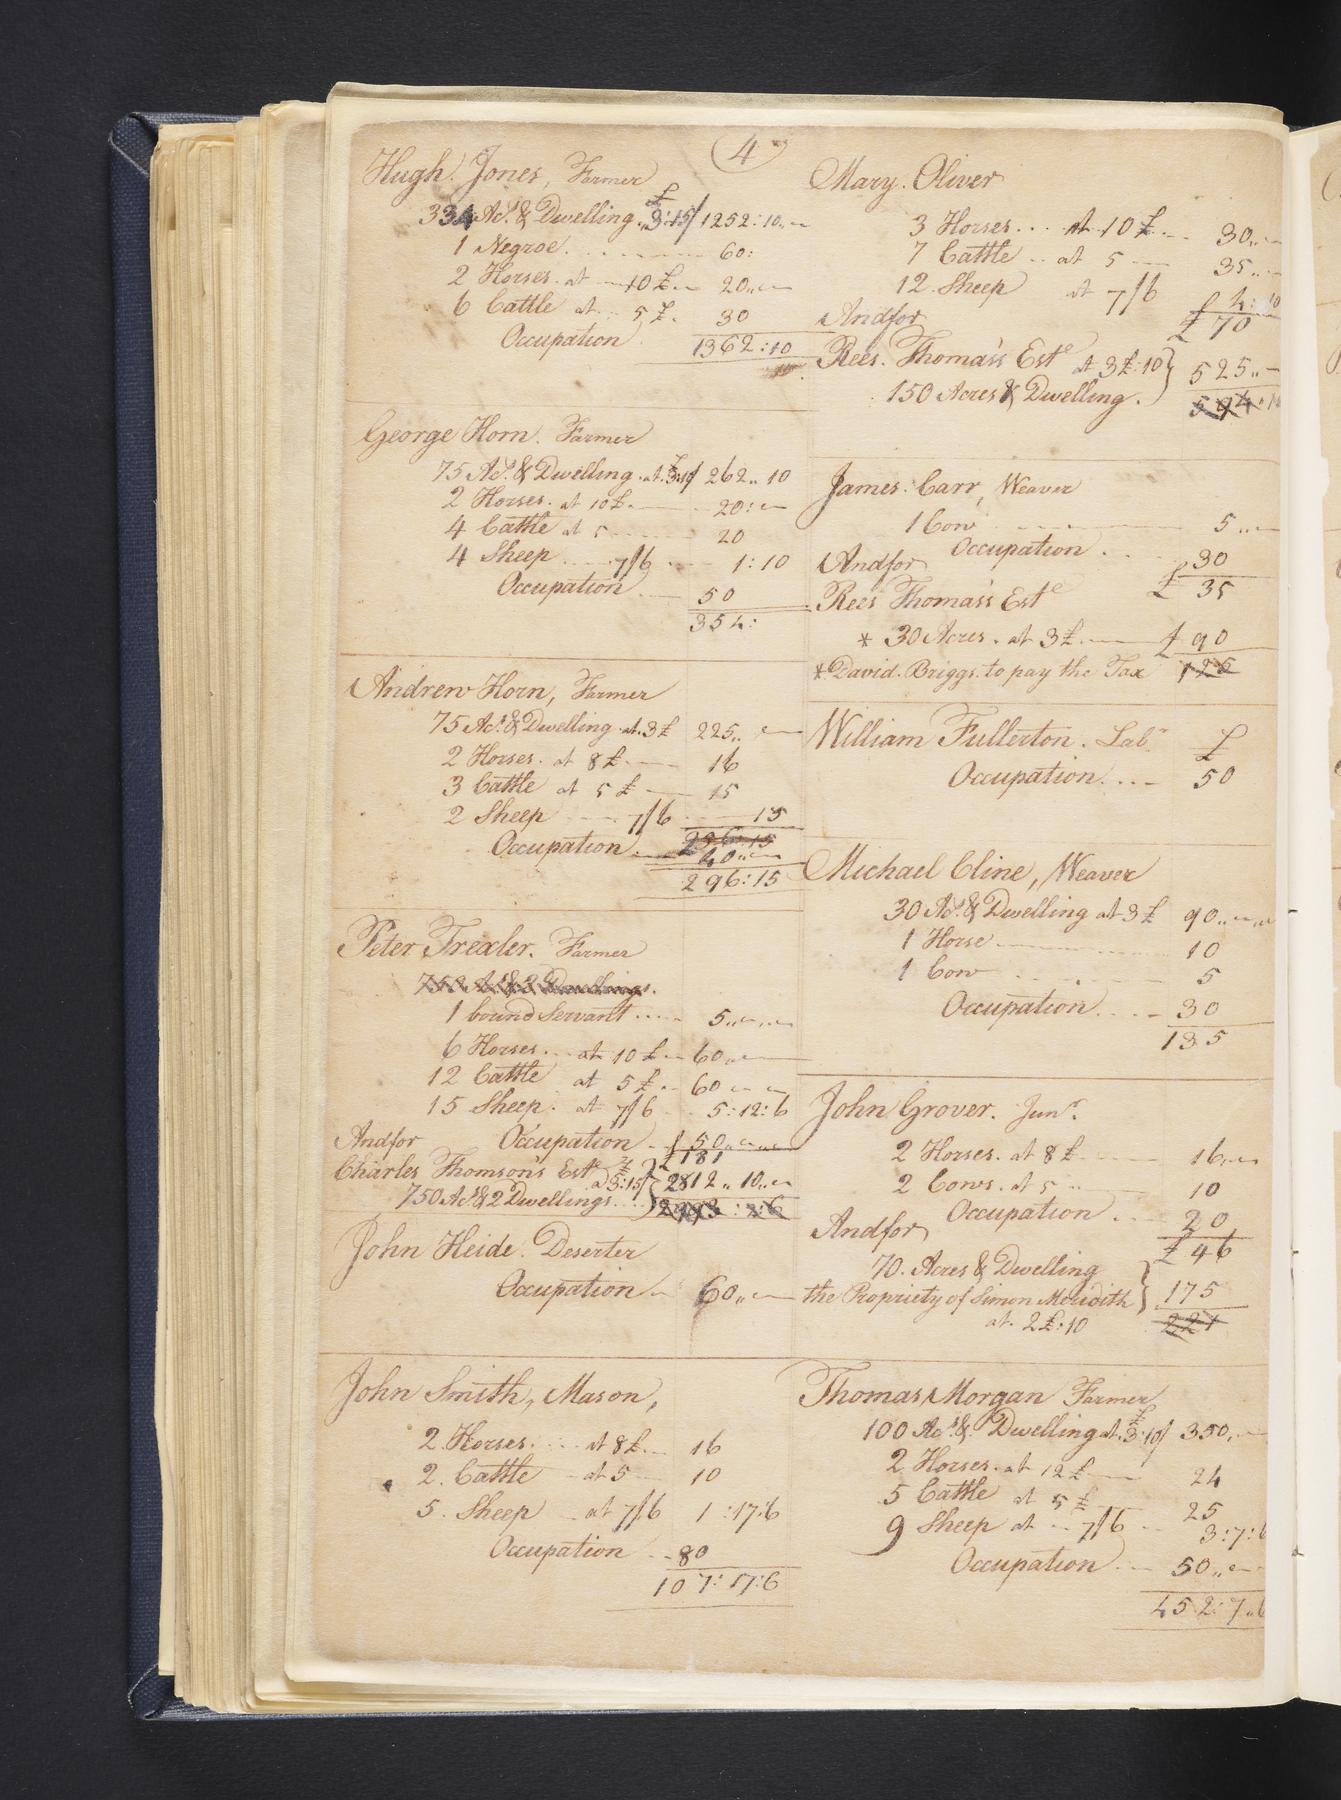 4
Hugh Jones, Farmer
334 Ac.s & Dwelling. £3:15/ 1252:10
1 Negroe 60:
2 Horses. at 10£ 20
6 Cattle at 5£. 30
Occupation
1362:10
George Horn. Farmer
75 Ac.s & Dwelling. at £3:10/ 262,, 10
2 Horses. at 10£. 20:
4 Cattle at 5 20
4 Sheep 7/6 1:10
Occupation 50
354:
Andrew Horn, Farmer
75 Ac.s & Dwelling at. 3£ 225,,
2 Horses. at 8£ 16
3 Cattle at 5£ 15
2 Sheep 7/6 15
256:15
Occupation. 40,,
296:15
Peter Trexler. Farmer
750 Ac.s & 2 Dwellings.
1 bound Servant 5,,
6 Horses. at 10£ 60,,
12 Cattle at 5£ 60
15 Sheep. at 7/6 5:12:6
Andfor Occupation £50,,
£181
Charles Thomson's Est.e @ £3:15/ } 2812,, 10,,
750 Ac.s & 2 Dwellings
John Heide. Deserter
Occupation 60,,
John Smith, Mason,
2 Horses. at 8£ 16
2. Cattle at 5 10
5. Sheep at 7/6 1:17:6
Occupation 80
107:17:6
Mary. Oliver
3 Horses at 10£ 30,,
7 Cattle at 5 35,,
12 Sheep at 7/6 4:10
Andfor £70
Rees. Thomas's Est.e at 3£:10 } 525,,
150 Acres & Dwelling.
James. Carr, Weaver
1 Cow 5,,
Occupation. 30
Andfor £35
Rees Thomas's Est.e
* 30 Acres. at 3£. £90
* David. Briggs. to pay the Tax 125
William Fullerton. Lab.r £
Occupation 50
Michael Cline, Weaver
30 Ac.s & Dwelling at 3£ 90,,
1 Horse 10
1 Cow 5
Occupation 30
135
John Grover. Jun.r
2 Horses. at 8£ 16,,
2 Cows. at 5 10
Occupation 20
Andfor £46
70. Acres & Dwelling
the Propriety of Simon Meridith } 175
at. 2£:10 221
Thomas Morgan Farmer
100 Ac.s & Dwelling at. £3:10/ 350,,
2 Horses. at 12£ 24
5 Cattle at 5£ 25
9 Sheep at 7/6 3:7:6
Occupation 50,,
452:7,,6